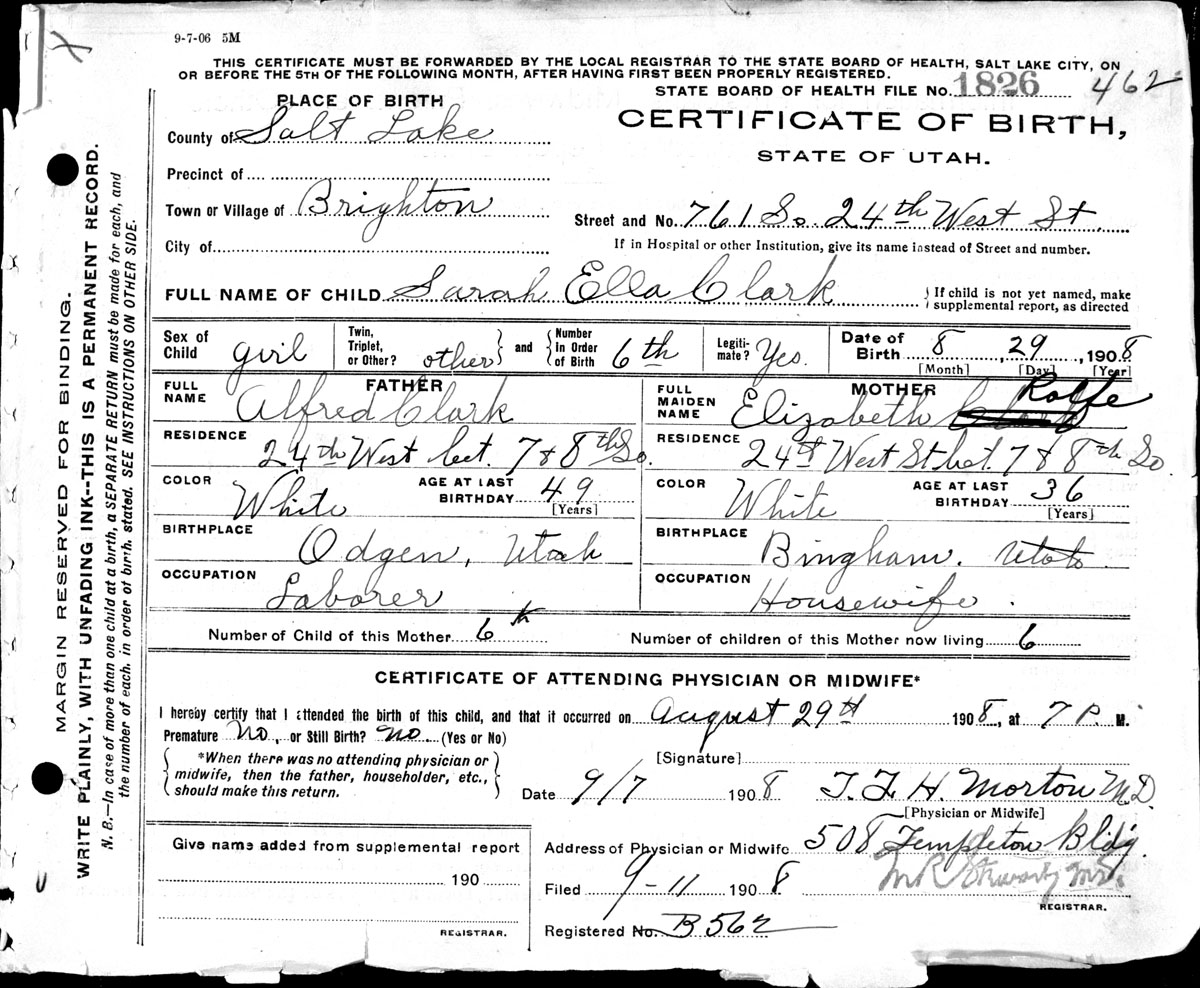 9-7-06 5M
THIS CERTIFICATE MUST BE FORWARDED BY THE LOCAL REGISTRAR TO THE STATE BOARD OF HEALTH, SALT LAKE CITY, ON
OR BEFORE THE 5TH OF THE FOLLOWING MONTH, AFTER HAVING FIRST BEEN PROPERLY REGISTERED.
STATE BOARD OF HEALTH FILE No. 1826 462
PLACE OF BIRTH
CERTIFICATE OF BIRTH,
STATE OF UTAH.
County of Salt Lake
Precinct of
Town or Village of Brighton
Street and No. 761 So. 24th West St
City of
If in Hospital or other Institution, give its name instead of Street and number.
FULL NAME OF CHILD Sarah Ella Clark
{ If child is not yet named, make
supplemental report, as directed
Sex of Child girl
Twin, Triplet, or Other? other
and { Number in Order of Birth 6th
Legiti-mate? Yes.
Date of Birth 8, 29, 1908
[Month] [Day] [Year]
FATHER
FULL NAME Alfred Clark
RESIDENCE 24th West bet. 7 & 8th So.
COLOR White
AGE AT LAST BIRTHDAY 49
[Years]
BIRTHPLACE Odgen, Utah
OCCUPATION Laborer
MOTHER
FULL MAIDEN NAME Elizabeth Rolfe
RESIDENCE 24th West St bet. 7 & 8th So.
COLOR White
AGE AT LAST BIRTHDAY 36
[Years]
BIRTHPLACE Bingham. Utah
OCCUPATION Housewife.
Number of Child of this Mother 6th
Number of children of this Mother now living 6
CERTIFICATE OF ATTENDING PHYSICIAN OR MIDWIFE*
I hereby certify that I attended the birth of this child, and that it occurred on August 29th 1908, at 7 P. M.
Premature No, or Still Birth? No (Yes or No)
{ *When there was no attending physician or
midwife, then the father, householder, etc.,
should make this return. }
[Signature]
Date 9/7 1908 T. F. H. Morton M.D.
[Physician or Midwife]
Address of Physician or Midwife 508 Templeton Bldg.
Give name added from supplemental report
190
REGISTRAR.
Filed 9-11 1908
REGISTRAR.
Registered No. B562
MARGIN RESERVED FOR BINDING.
WRITE PLAINLY, WITH UNFADING INK--THIS IS A PERMANENT RECORD.
N. B.—In case of more than one child at a birth, a SEPARATE RETURN must be made for each, and
the number of each, in order of birth, stated. SEE INSTRUCTIONS ON OTHER SIDE.